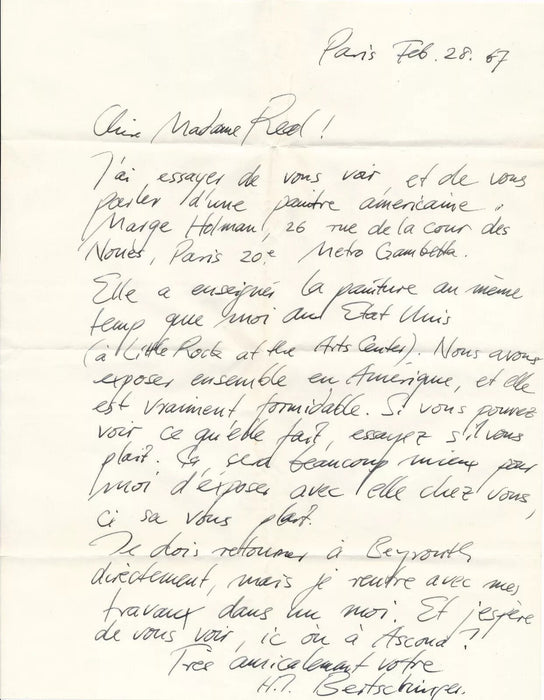 Paris Feb. 28. 67
Chère Madame Read!
J'ai essayer de vous voir et de vous
parler d'une peintre américaine.
Marge Holman, 26 rue de la cour des
Noues, Paris 20.e Metro Gambetta.
Elle a enseigner la peinture au même
temp que moi au Etat Unis
(à Little Rock at the Arts Center). Nous avons
exposer ensemble en Amerique, et elle
est vraiment formidable. Si vous pouvez
voir ce qu'elle fait, essayez s'il vous
plait. Ça sera beaucoup mieux pour
moi d'éxposer avec elle chez vous,
ci sa vous plait.
Je dois retourner à Beyrouth
directement, mais je rentre avec mes
travaux dans un moi. Et j'espère
de vous voir, ic ou à Ascona?
Très amicalement votre
H.J. Bertschinger.